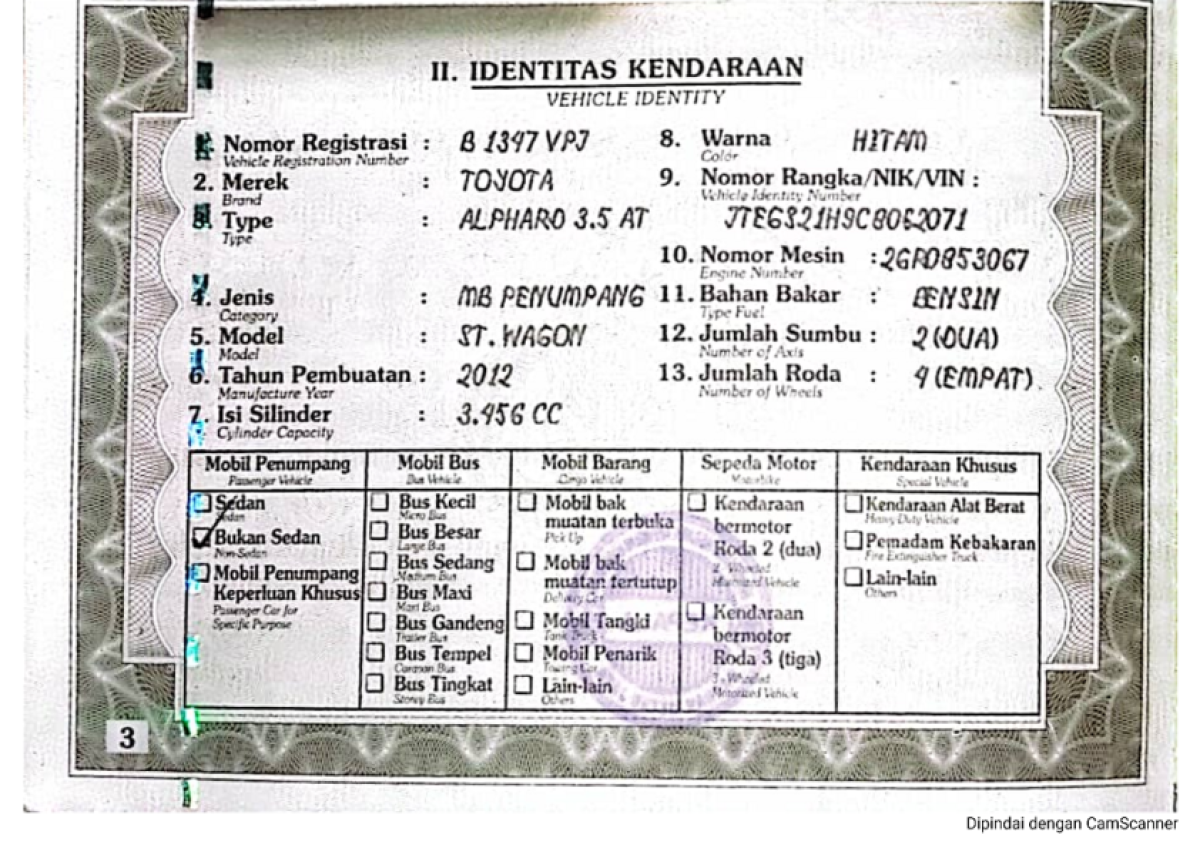 II. IDENTITAS KENDARAAN
VEHICLE IDENTITY
1. Nomor Registrasi : B 1347 VPJ
Vehicle Registration Number
2. Merek : TOYOTA
Brand
3. Type : ALPHARD 3.5 AT
Type
4. Jenis : MB PENUMPANG
Category
5. Model : ST. WAGON
Model
6. Tahun Pembuatan : 2012
Manufacture Year
7. Isi Silinder : 3.456 CC
Cylinder Capacity
8. Warna HITAM
Color
9. Nomor Rangka/NIK/VIN :
Vehicle Identity Number
JTEGS21H9C8062071
10. Nomor Mesin : 2GR0853067
Engine Number
11. Bahan Bakar : BENSIN
Type Fuel
12. Jumlah Sumbu : 2 (DUA)
Number of Axis
13. Jumlah Roda : 4 (EMPAT)
Number of Wheels
Mobil Penumpang
Passenger Vehicle
Sedan
Sedan
Bukan Sedan
Non-Sedan
Mobil Penumpang
Keperluan Khusus
Passenger Car for
Specific Purpose
Mobil Bus
Bus Vehicle
Bus Kecil
Micro Bus
Bus Besar
Large Bus
Bus Sedang
Medium Bus
Bus Maxi
Maxi Bus
Bus Gandeng
Trailer Bus
Bus Tempel
Caravan Bus
Bus Tingkat
Storey Bus
Mobil Barang
Cargo Vehicle
Mobil bak
muatan terbuka
Pick Up
Mobil bak
muatan tertutup
Delivery Car
Mobil Tangki
Tank Truck
Mobil Penarik
Towing Car
Lain-lain
Others
Sepeda Motor
Motorbike
Kendaraan
bermotor
Roda 2 (dua)
2 - Wheeled
Motorized Vehicle
Kendaraan
bermotor
Roda 3 (tiga)
3 - Wheeled
Motorized Vehicle
Kendaraan Khusus
Special Vehicle
Kendaraan Alat Berat
Heavy Duty Vehicle
Pemadam Kebakaran
Fire Extinguisher Truck
Lain-lain
Others
3
Dipindai dengan CamScanner